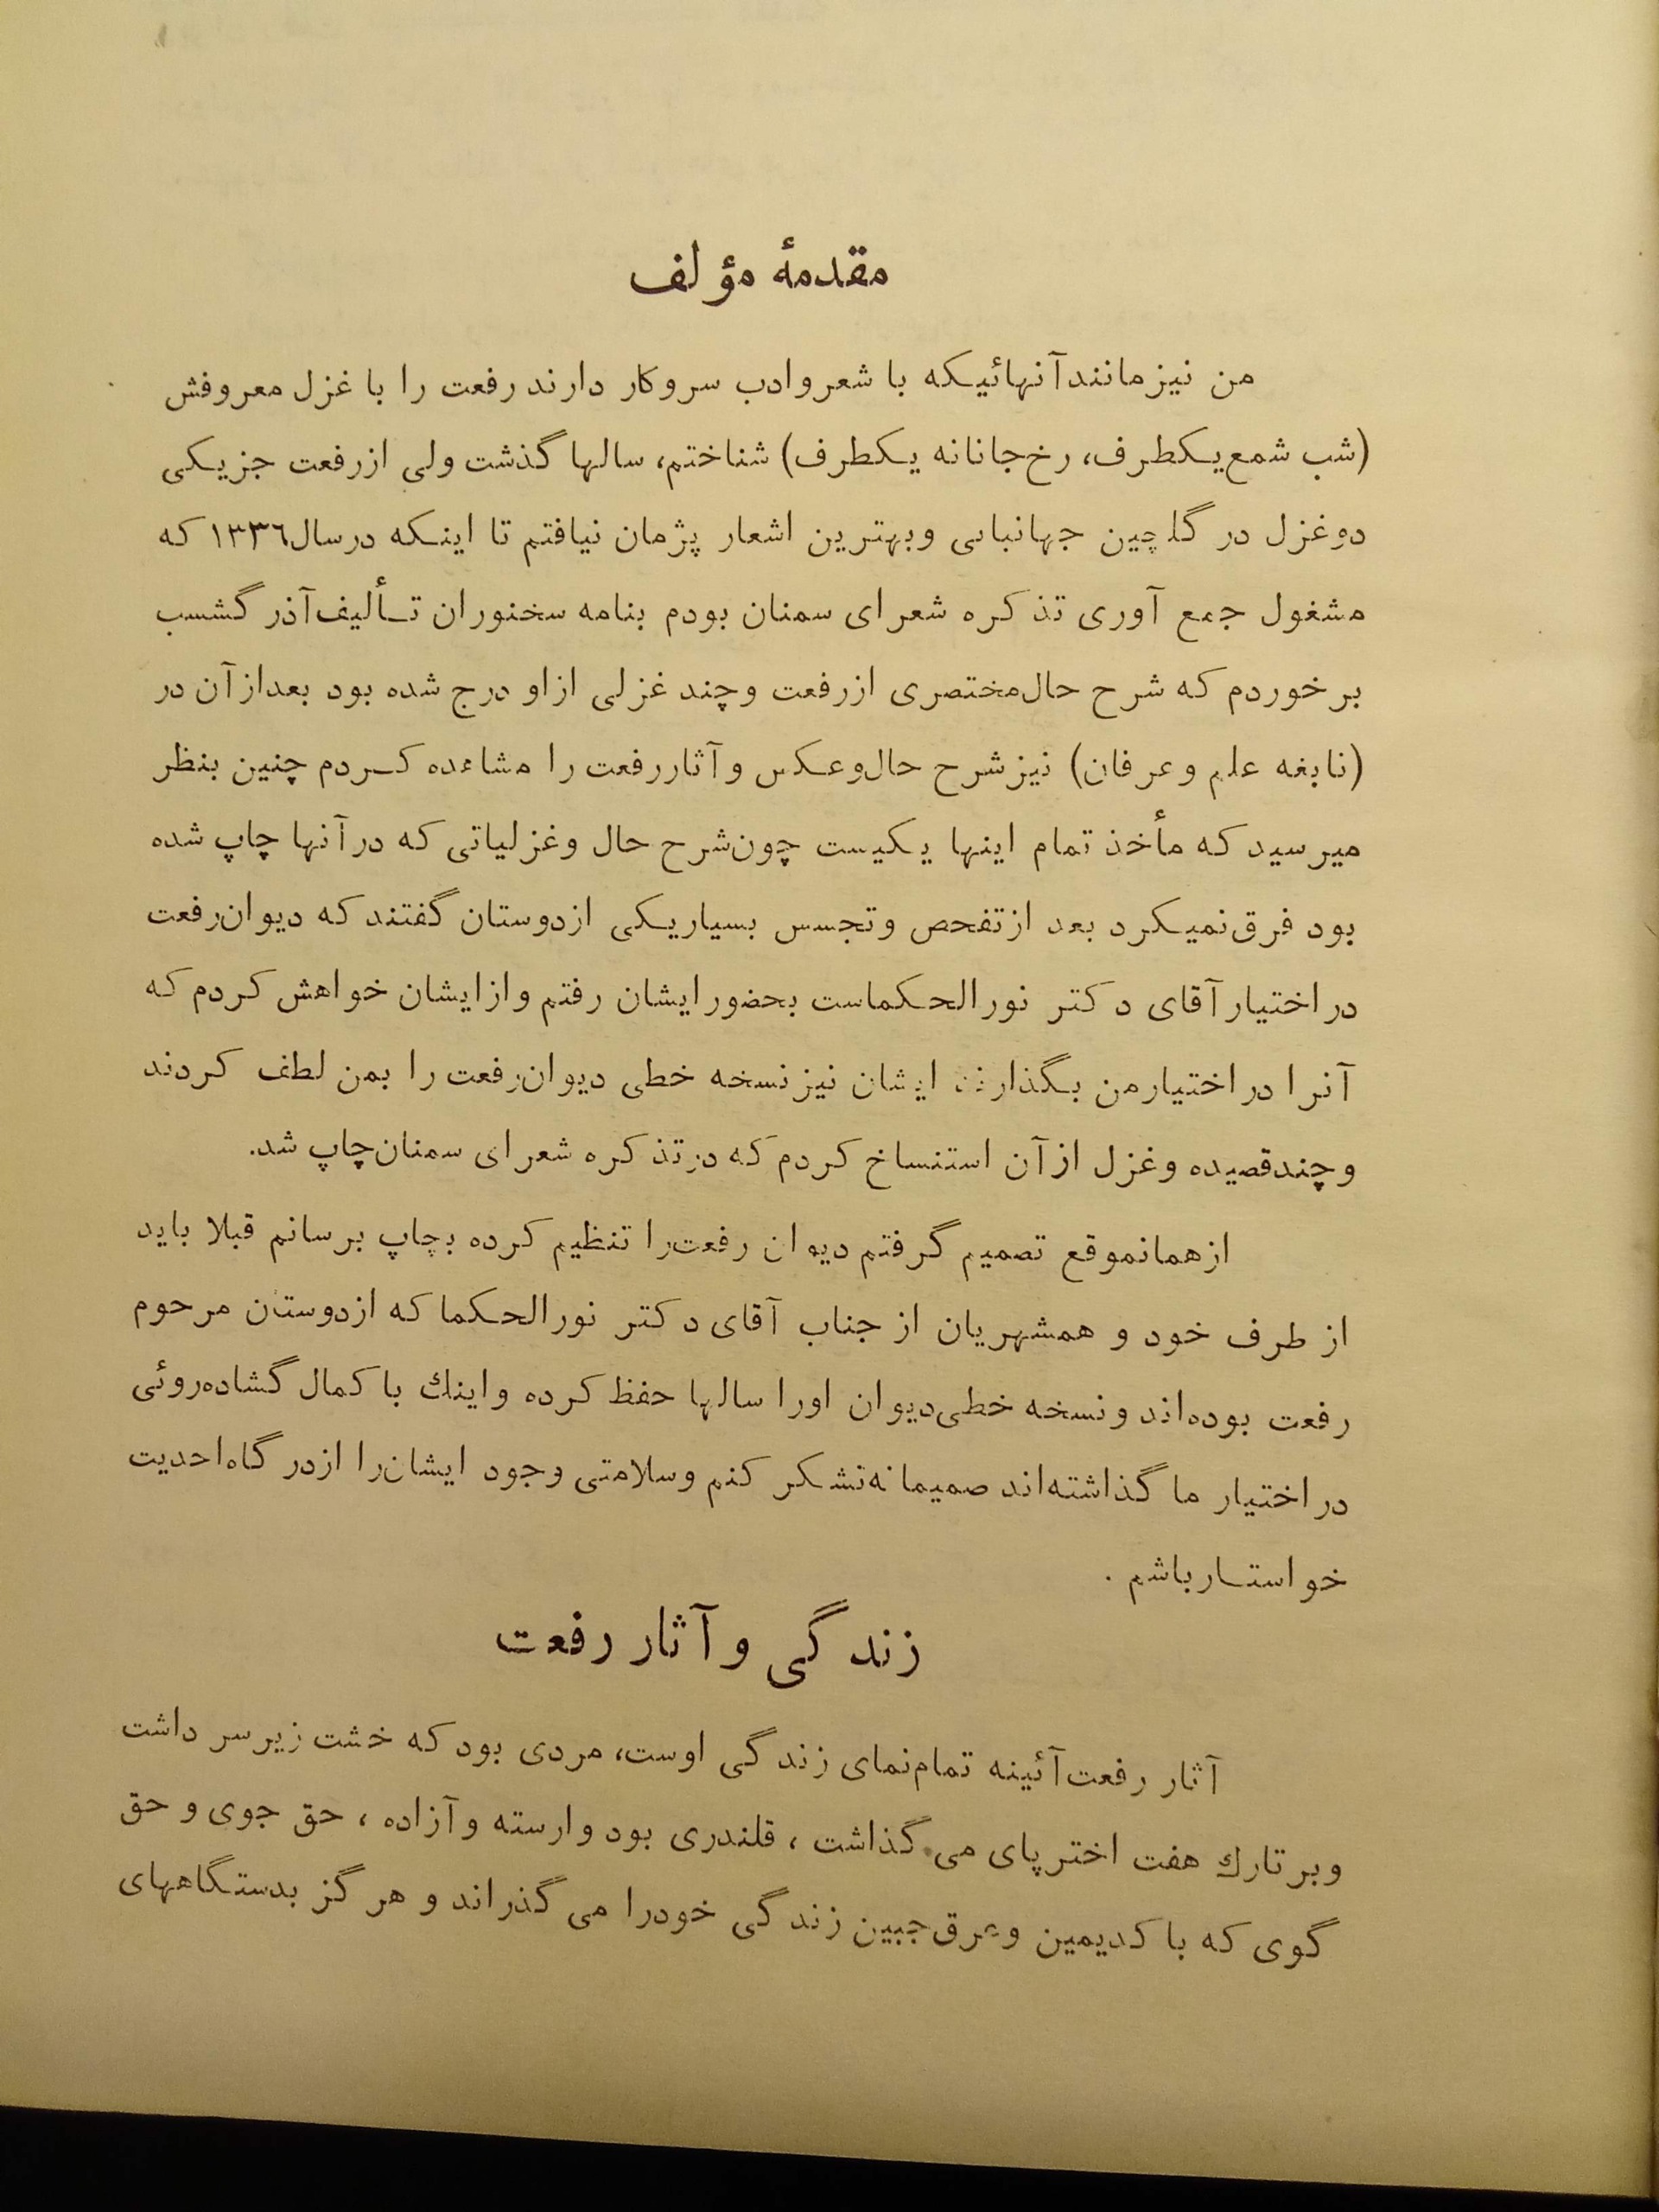 مقدمهٔ مؤلف
من نیز مانند آنهائیکه با شعر و ادب سروکار دارند رفعت را با غزل معروفش
(شب شمع یکطرف، رخ جانانه یکطرف) شناختم، سالها گذشت ولی از رفعت جز یکی
دو غزل در گلچین جهانبانی و بهترین اشعار پژمان نیافتم تا اینکه در سال ۱۳۳۶ که
مشغول جمع آوری تذکره شعرای سمنان بودم بنامه سخنوران تألیف آذر گشسب
برخوردم که شرح حال مختصری از رفعت و چند غزلی از او درج شده بود بعد از آن در
(نابغه علم و عرفان) نیز شرح حال و عکس و آثار رفعت را مشاهده کردم چنین بنظر
میرسید که مأخذ تمام اینها یکیست چون شرح حال و غزلیاتی که در آنها چاپ شده
بود فرق نمیکرد بعد از تفحص و تجسس بسیار یکی از دوستان گفتند که دیوان رفعت
در اختیار آقای دکتر نورالحکماست بحضور ایشان رفتم و از ایشان خواهش کردم که
آنرا در اختیار من بگذارند ایشان نیز نسخه خطی دیوان رفعت را بمن لطف کردند
و چند قصیده و غزل از آن استنساخ کردم که در تذکره شعرای سمنان چاپ شد.
از همانموقع تصمیم گرفتم دیوان رفعت را تنظیم کرده بچاپ برسانم قبلا باید
از طرف خود و همشهریان از جناب آقای دکتر نورالحکما که از دوستان مرحوم
رفعت بوده‌اند و نسخه خطی دیوان اورا سالها حفظ کرده و اینك با کمال گشاده‌روئی
در اختیار ما گذاشته‌اند صمیمانه تشکر کنم و سلامتی وجود ایشان را از درگاه احدیت
خواستار باشم .
زندگی و آثار رفعت
آثار رفعت آئینه تمام نمای زندگی اوست، مردی بود که خشت زیر سر داشت
و بر تارك هفت اختر پای می گذاشت ، قلندری بود وارسته و آزاده ، حق جوی و حق
گوی که با کدیمین و عرق جبین زندگی خودرا می گذراند و هرگز بدستگاههای